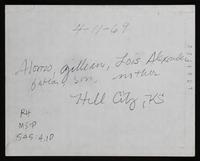 4-11-69
Alonzo, Gillean, Lois Alexander
father, son, mother
Hill City, KS
RH
MS-P
545:4.10